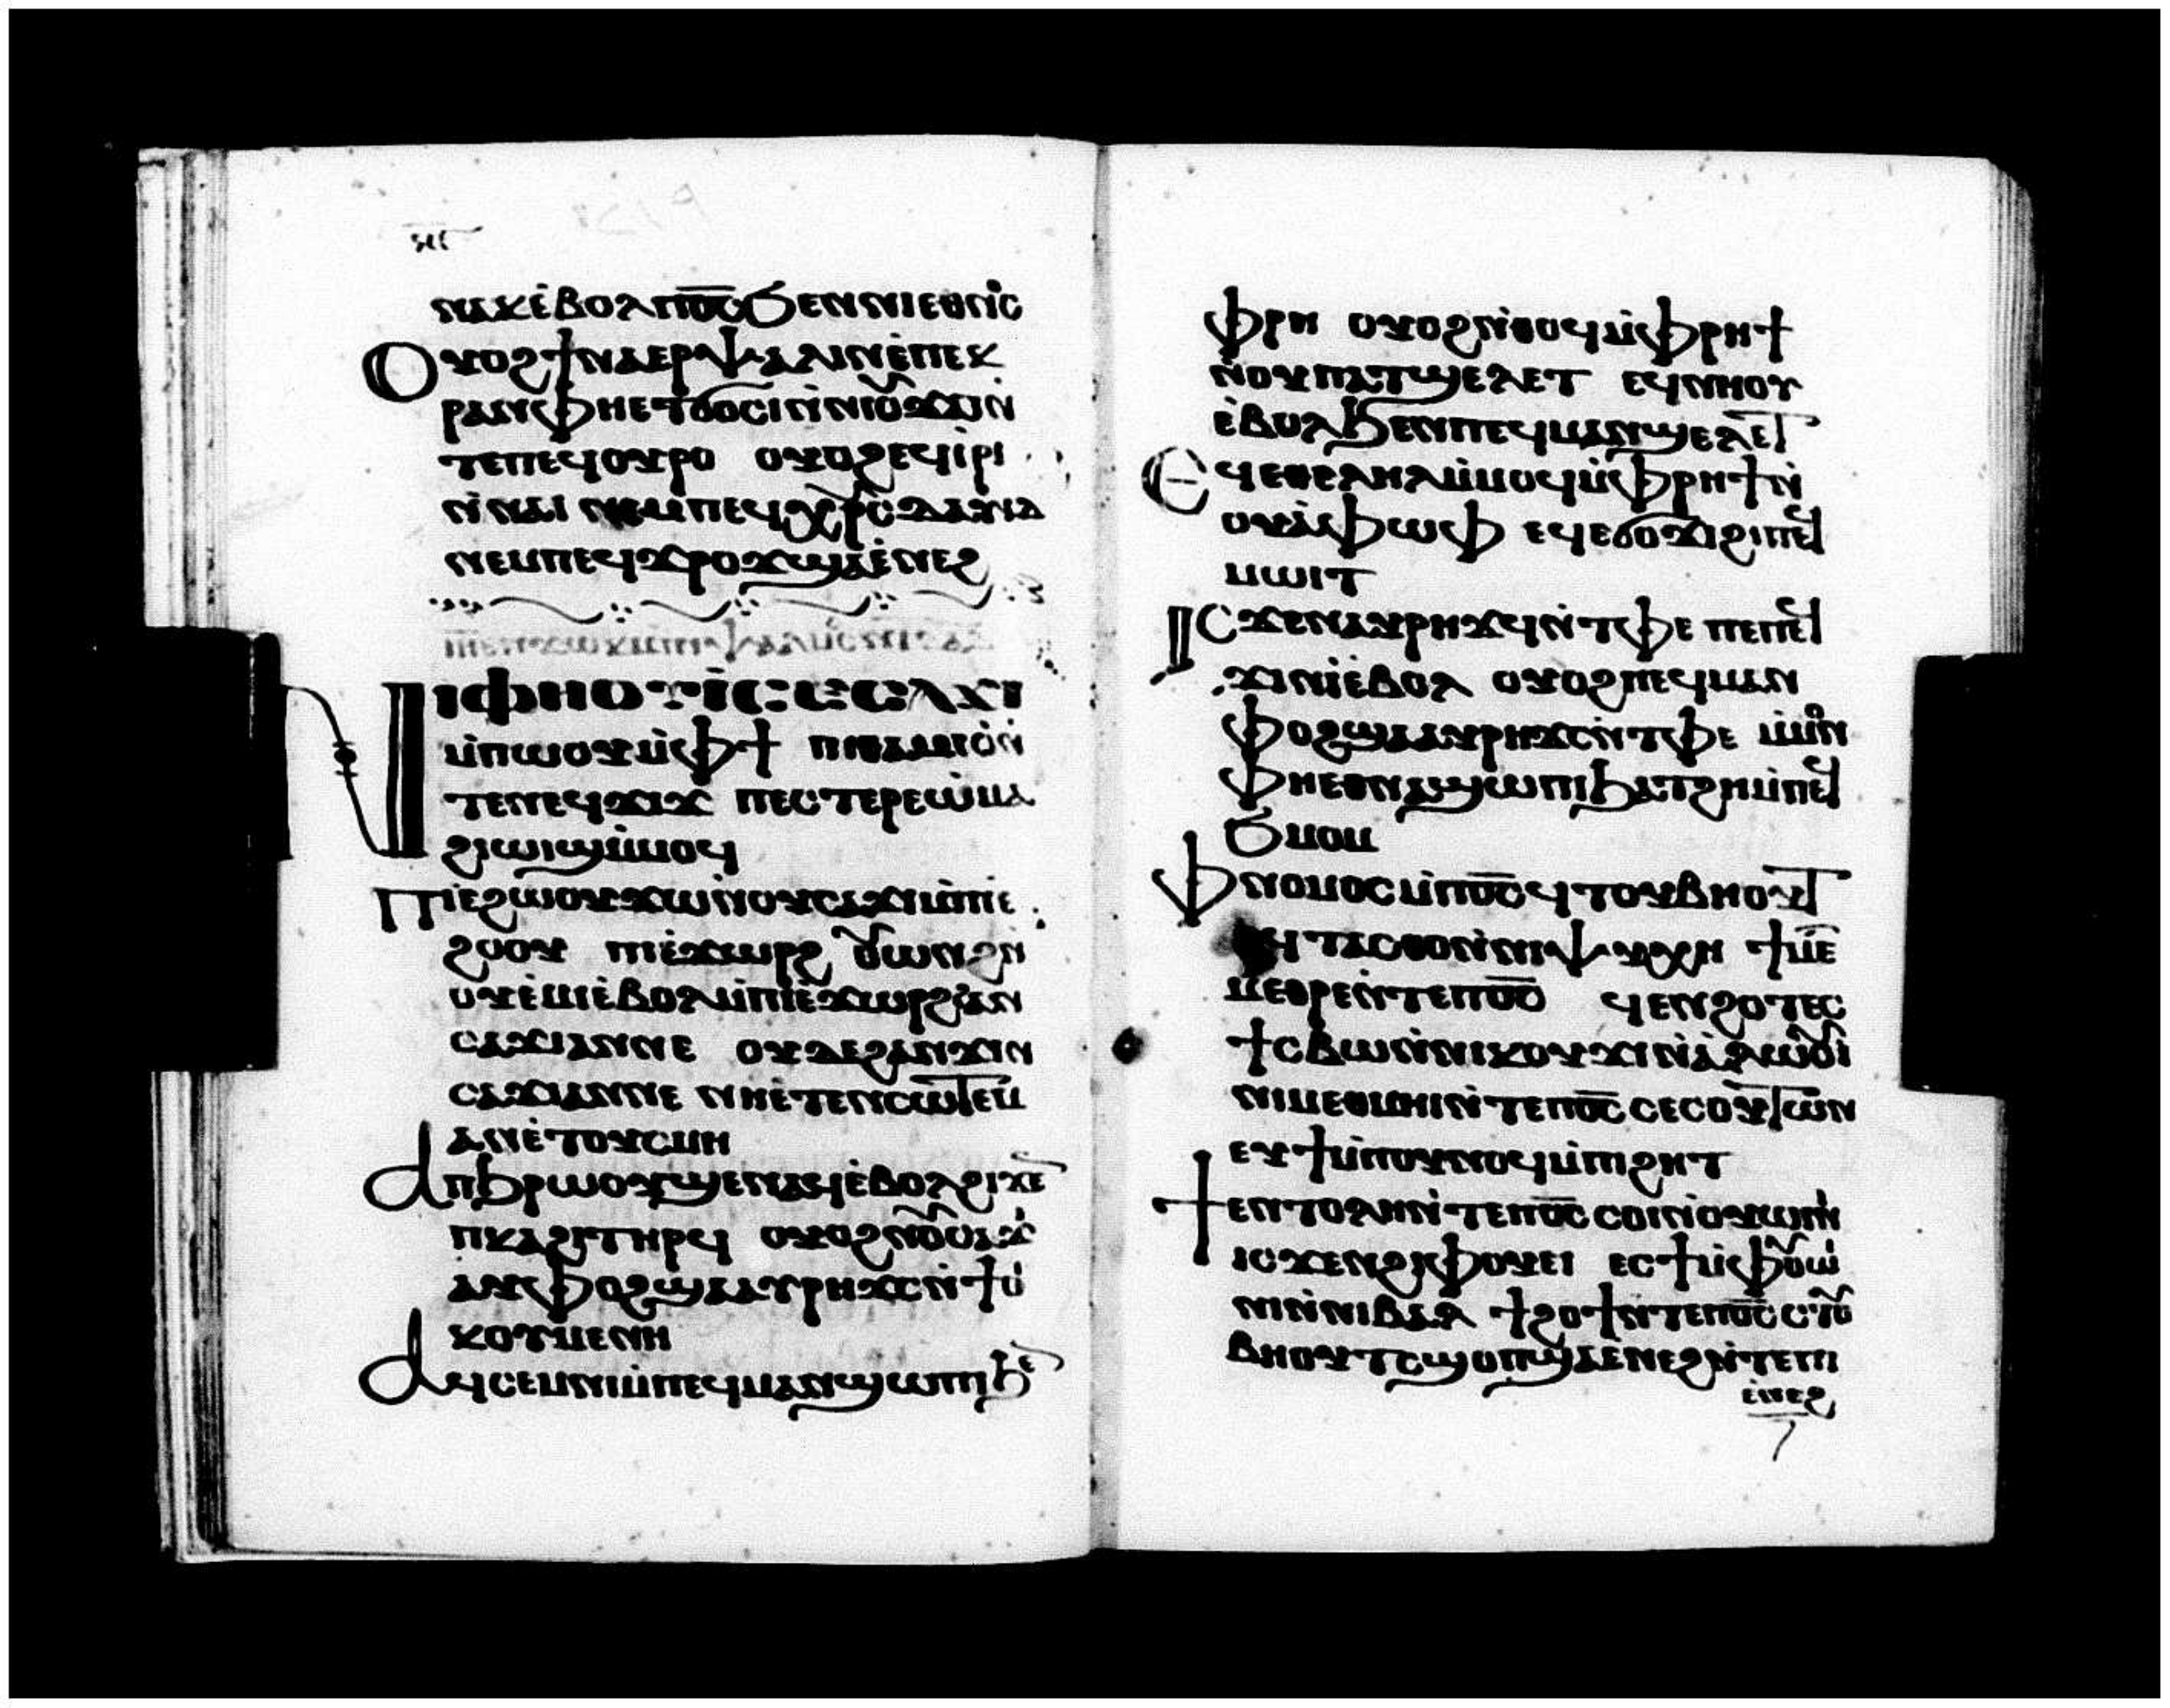 ⲛⲁⲕⲉ̀ⲃⲟⲗⲡⲟ̅ⲥ̅ϧⲉⲛⲛⲓⲉⲑⲛⲟⲥ
Ⲟⲩⲟϩϯⲛⲁⲉⲣⲯⲁⲗⲓⲛⲉ̀ⲡⲉⲕ
ⲣⲁⲛⲫⲏⲉⲧϭⲟⲥⲓⲛ̀ⲛⲓⲟⲩϫⲁⲓⲛ̀
ⲧⲉⲡⲉϥⲟⲩⲣⲟ ⲟⲩⲟϩⲉϥⲓ̀ⲣⲓ
ⲛ̀ⲛⲁⲓ ⲛⲉⲙⲡⲉϥⲭ̅ⲣ̅ⲥ̅ⲇⲁⲩⲓⲇ
ⲛⲉⲙⲡⲉϥϫⲣⲟϫϣⲁⲉ̀ⲛⲉϩ
Ⲛⲓⲫⲏⲟⲩⲓ̀ⲥⲉⲥⲁϫⲓ
ⲙ̀ⲡⲱⲟⲩⲙ̀ⲫϯ ⲡⲓⲑⲁⲙⲓⲟ̀ⲛ̀
ⲧⲉⲛⲉϥϫⲓϫ ⲡⲉⲥⲧⲉⲣⲉⲱ̀ⲙⲁ
ϩⲓⲱⲓϣⲙ̀ⲙⲟϥ
Ⲡⲓⲉ̀ϩⲟⲟⲩϫⲱⲛ̀ⲟⲩⲥⲁϫⲓⲙ̀ⲡⲓⲉ̀
ϩⲟⲟⲩ ⲡⲓⲉ̀ϫⲱⲣϩ ⲟⲩⲱⲛϩⲛ̀
ⲟⲩⲉ̀ⲙⲓⲉ̀ⲃⲟⲗⲙ̀ⲡⲓⲉ̀ϫⲱⲣϩϩⲁⲛ
ⲥⲁϫⲓⲁⲛⲛⲉ ⲟⲩⲇⲉϩⲁⲛϫⲓⲛ
ⲥⲁϫⲓⲁⲛⲛⲉ ⲛⲏⲉ̀ⲧⲉⲛⲥⲱⲧⲉⲙ
ⲁⲛⲉ̀ⲧⲟⲩⲥⲙⲏ
Ⲁⲡϧⲣⲱⲟⲩϣⲉⲛⲁϥⲉ̀ⲃⲟⲗϩⲓϫⲉⲛ
ⲡⲕⲁϩⲓⲧⲏⲣϥ ⲟⲩⲟϩⲛⲟⲩⲥⲁϫⲓ
ⲁⲩⲫⲟϩϣⲁⲁⲩⲣⲏϫⲥⲛ̀ϯⲟⲓ
ⲕⲟⲩⲙⲉⲛⲏ
Ⲁϥⲥⲉⲙⲛⲓⲙ̀ⲡⲉϥⲙⲁⲛϣⲱⲡⲓϧⲉⲛ
ⲫⲣⲏ ⲟⲩⲟϩⲛ̀ⲑⲟϥⲙ̀ⲫⲣⲏϯ
ⲛ̀ⲟⲩⲡⲁⲧϣⲉⲗⲉⲧ ⲉϥⲛⲏⲟⲩ
ⲉ̀ⲃⲟⲗϧⲉⲛⲡⲉϥⲙⲁⲛϣⲉⲗⲉⲧ
Ⲉϥⲉⲑⲉⲗⲏⲗⲙ̀ⲙⲟϥⲙ̀ⲫⲣⲏϯⲛ̀
ⲟⲩⲁ̀ⲫⲱⲫ ⲉϥⲉϭⲟϫⲓϩⲓⲡⲉϥ
ⲙⲱⲓⲧ
Ⲓⲥϫⲉⲛⲁⲩⲣⲏϫϥⲛ̀ⲧⲫⲉ ⲡⲉⲡⲉϥ
ϫⲓⲛⲓ̀ⲉ̀ⲃⲟⲗ ⲟⲩⲟϩⲡⲉϥⲙⲁⲛ
ⲫⲟϩϣⲁⲁⲩⲣⲏϫⲥⲛ̀ⲧⲫⲉ ⲙ̀ⲙⲟⲛ
ⲫⲏⲉⲑⲛⲁϣⲱⲡⲓϧⲁⲧϩⲏⲙ̀ⲡⲉϥ
ϧⲙⲟⲙ
Ⲫⲛⲟⲙⲟⲥⲙ̀ⲡⲟ̅ⲥ̅ϥⲧⲟⲩⲃⲏⲟⲩⲧ
ϥⲧⲁⲥⲑⲟⲛ̀ⲛⲓⲯⲩⲭⲏ ϯⲙⲉⲧ
ⲙⲉⲑⲣⲉⲛ̀ⲧⲉⲡⲟ̅ⲥ̅ ϥⲉⲛϩⲟⲧⲉⲥ
ϯⲥⲃⲱⲛ̀ⲛⲓⲕⲟⲩϫⲓⲛ̀ⲁ̀ⲗⲱⲟⲩⲓ̀
ⲛⲓⲙⲉⲑⲙⲏⲓⲛ̀ⲧⲉⲡⲟ̅ⲥ̅ⲥⲉⲥⲟⲩⲧⲱⲛ
ⲉⲩϯⲙ̀ⲡⲟⲩⲛⲟϥⲙ̀ⲡⲓϩⲏⲧ
Ϯⲉⲛⲧⲟⲗⲏⲛ̀ⲧⲉⲡⲟ̅ⲥ̅ⲥⲟⲓⲛ̀ⲟⲩⲱⲓⲛⲓ
ⲓⲥϫⲉⲛϩⲓⲫⲟⲩⲉⲓ ⲉⲥϯⲙ̀ⲫⲟⲩⲱ̀
ⲓⲛⲓⲛ̀ⲛⲓⲃⲁⲗ ϯϩⲟϯⲛ̀ⲧⲉⲡⲟ̅ⲥ̅ⲥⲧⲟⲩ
ⲃⲏⲟⲩⲧⲥϣⲟⲡϣⲁⲉ̀ⲛⲉϩⲛ̀ⲧⲉⲡⲓ
ⲉ̀ⲛⲉϩ